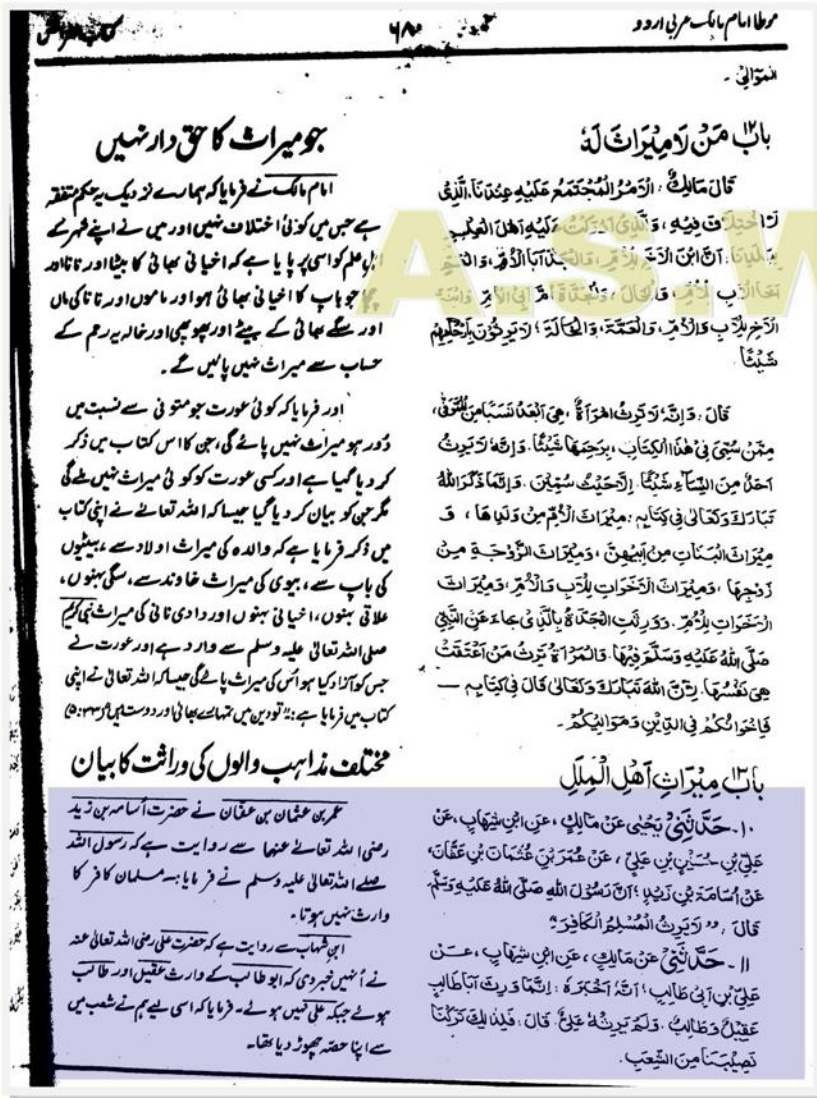 موطا امام مالک عربی اردو
۶۸۰
الموالي -
باب ۱۲ مَنْ لَا مِيْرَاثَ لَهٗ
قَالَ مَالِكٌ: الْاَمْرُ الْمُجْتَمَعُ عَلَيْهِ عِنْدَنَا، الَّذِيْ
لَا اخْتِلَافَ فِيْهِ، وَالَّذِيْ اَدْرَكْتُ عَلَيْهِ اَهْلَ الْعِلْمِ
بِبَلَدِنَا: اَنَّ ابْنَ الْاَخِ لِلْاُمِّ، وَالْجَدَّ اَبَا الْاُمِّ، وَالْعَمَّ
اَخَا الْاَبِ لِلْاُمِّ، وَالْخَالَ، وَالْجَدَّةَ اُمَّ اَبِي الْاُمِّ وَابْنَةَ
الْاَخِ لِلْاَبِ وَالْاُمِّ، وَالْعَمَّةَ، وَالْخَالَةَ؛ لَا يَرِثُوْنَ بِاَرْحَامِهِمْ
شَيْئًا
قَالَ: وَاِنَّهٗ لَا تَرِثُ امْرَاَةٌ، هِيَ اَبْعَدُ نَسَبًا مِنَ الْمُتَوَفّٰى،
مِمَّنْ سُمِّيَ فِيْ هٰذَا الْكِتَابِ، بِرَحِمِهَا شَيْئًا. وَاِنَّهٗ لَا يَرِثُ
اَحَدٌ مِنَ النِّسَاءِ شَيْئًا. اِلَّا حَيْثُ سُمِّيْنَ. وَاِنَّمَا ذَكَرَ اللهُ
تَبَارَكَ وَتَعَالٰى فِيْ كِتَابِهٖ: مِيْرَاثَ الْاُمِّ مِنْ وَلَدِهَا، وَ
مِيْرَاثَ الْبَنَاتِ مِنْ اَبِيْهِنَّ، وَمِيْرَاثَ الزَّوْجَةِ مِنْ
زَوْجِهَا، وَمِيْرَاثَ الْاَخَوَاتِ لِلْاَبِ وَالْاُمِّ، وَمِيْرَاثَ
الْاَخَوَاتِ لِلْاُمِّ. وَوَرِثَتِ الْجَدَّةُ بِالَّذِيْ جَاءَ عَنِ النَّبِيِّ
صَلَّى اللهُ عَلَيْهِ وَسَلَّمَ فِيْهَا. وَالْمَرْاَةُ تَرِثُ مَنْ اَعْتَقَتْ
هِيَ نَفْسُهَا. لِاَنَّ اللهَ تَبَارَكَ وَتَعَالٰى قَالَ فِيْ كِتَابِهٖ —
فَاِخْوَانُكُمْ فِي الدِّيْنِ وَمَوَالِيْكُمْ -
باب ۱۳ مِيْرَاثِ اَهْلِ الْمِلَلِ
۱۰- حَدَّثَنِيْ يَحْيٰى عَنْ مَالِكٍ، عَنِ ابْنِ شِهَابٍ، عَنْ
عَلِيِّ بْنِ حُسَيْنِ بْنِ عَلِيٍّ، عَنْ عُمَرَ بْنِ عُثْمَانَ بْنِ عَفَّانَ،
عَنْ اُسَامَةَ بْنِ زَيْدٍ؛ اَنَّ رَسُوْلَ اللهِ صَلَّى اللهُ عَلَيْهِ وَسَلَّمَ
قَالَ: "لَا يَرِثُ الْمُسْلِمُ الْكَافِرَ"
۱۱- حَدَّثَنِيْ عَنْ مَالِكٍ، عَنِ ابْنِ شِهَابٍ، عَنْ
عَلِيِّ بْنِ اَبِيْ طَالِبٍ؛ اَنَّهٗ اَخْبَرَهٗ: اِنَّمَا وَرِثَ اَبَا طَالِبٍ
عَقِيْلٌ وَطَالِبٌ. وَلَمْ يَرِثْهُ عَلِيٌّ. قَالَ: فَلِذٰلِكَ تَرَكْنَا
نَصِيْبَنَا مِنَ الشِّعْبِ.
جو میراث کا حق دار نہیں
امام مالک نے فرمایا کہ ہمارے نزدیک یہ حکم متفقہ
ہے جس میں کوئی اختلاف نہیں اور میں نے اپنے شہر کے
اہل علم کو اسی پر پایا ہے کہ اخیافی بھائی کا بیٹا اور نانا اور
چچا جو باپ کا اخیافی بھائی ہو اور ماموں اور نانا کی ماں
اور سگے بھائی کے بیٹے اور پھوپھی اور خالہ یہ رحم کے
حساب سے میراث نہیں پائیں گے۔
اور فرمایا کہ کوئی عورت جو متوفی سے نسبت میں
دُور ہو میراث نہیں پائے گی، جن کا اس کتاب میں ذکر
کر دیا گیا ہے اور کسی عورت کو کوئی میراث نہیں ملے گی
مگر جن کو بیان کر دیا گیا جیسا کہ اللہ تعالےٰ نے اپنی کتاب
میں ذکر فرمایا ہے کہ والدہ کی میراث اولاد سے، بیٹیوں
کی باپ سے، بیوی کی میراث خاوند سے، سگی بہنوں،
علاتی بہنوں، اخیافی بہنوں اور دادی نانی کی میراث نبی کریم
صلی اللہ تعالیٰ علیہ وسلم سے وارد ہے اور عورت نے
جس کو آزاد کیا ہو اُس کی میراث پائے گی جیسا کہ اللہ تعالیٰ نے اپنی
کتاب میں فرمایا ہے: "تو دین میں تمہارے بھائی اور دوست ہیں" (۳۳:۵)
مختلف مذاہب والوں کی وراثت کا بیان
عمر بن عثمان بن عفان نے حضرت اُسامہ بن زید
رضی اللہ تعالےٰ عنہما سے روایت ہے کہ رسول اللہ
صلے اللہ تعالیٰ علیہ وسلم نے فرمایا: مسلمان کافر کا
وارث نہیں ہوتا۔
ابن شہاب سے روایت ہے کہ حضرت علی رضی اللہ تعالیٰ عنہ
نے اُنہیں خبر دی کہ ابو طالب کے وارث عقیل اور طالب
ہوئے جبکہ علی نہیں ہوئے۔ فرمایا کہ اسی لیے ہم نے شعب میں
سے اپنا حصہ چھوڑ دیا تھا۔
A.S.W